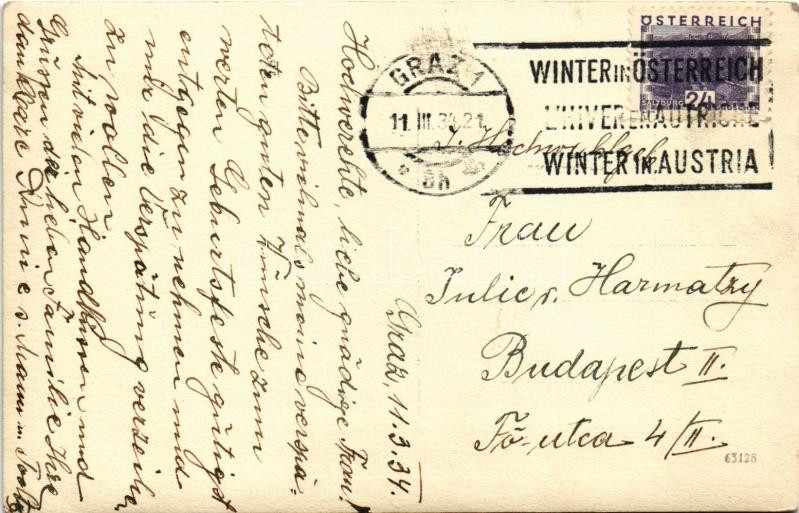 Graz, 11.3.34.
Hochverehrte, liebe gnädige Frau!
Bitte vielmals meine verspä-
teten guten Wünsche zum
werten Geburtsfeste gütigst
entgegen zu nehmen und
mir die Verspätung verzeihen
zu wollen.
Mit vielen Handküssen und
Grüssen der lieben Familie Ihre
dankbare
ÖSTERREICH
SALZBURG 24 GROSCHEN
GRAZ 1
11. III. 34. 21
* 8h *
WINTER IN ÖSTERREICH
L'HIVER EN AUTRICHE
WINTER IN AUSTRIA
Frau
Julie v. Harmatzy
Budapest II.
Fő-utca 4/II.
63128